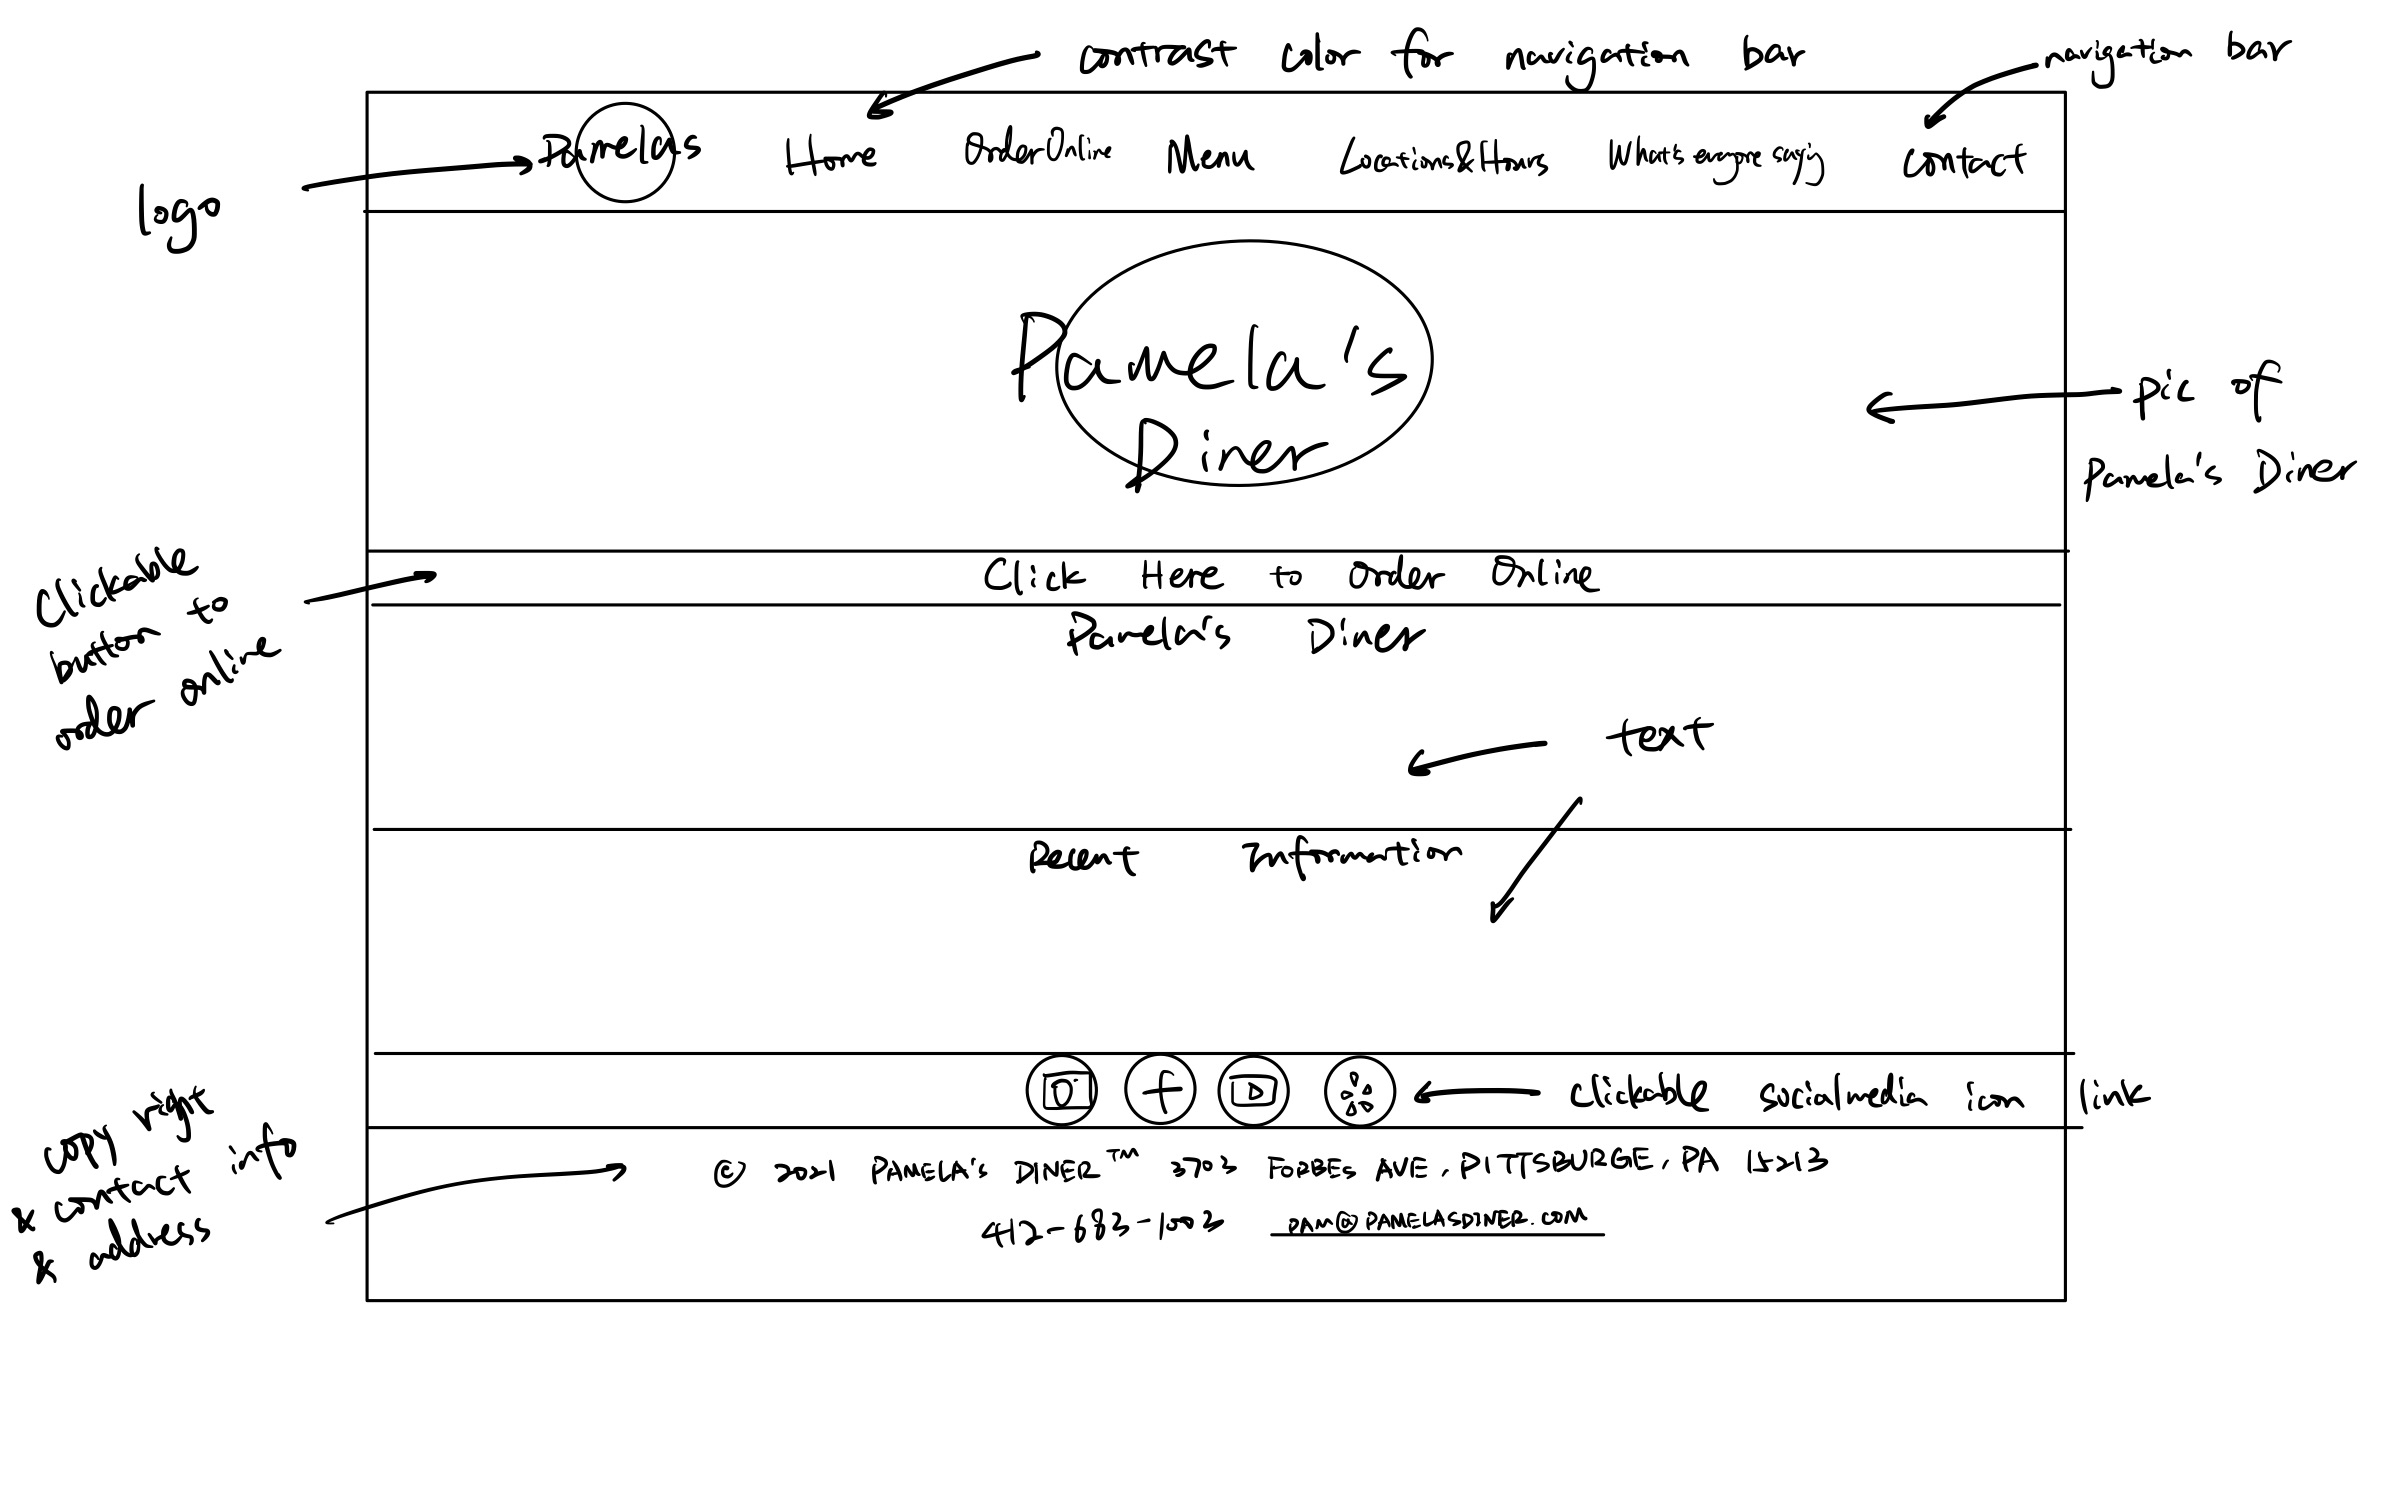 contrast color for navigation bar
navigation bar
logo
Pamelas Home OrderOnline Menu Locations&Hours What's everyone saying contact
Pamela's
Diner
pic of
Pamela's Diner
Clickable
button to
order online
Click Here to Order Online
Pamela's Diner
text
Recent Information
clickable socialmedia icon link
copy right
& contact info
& address
© 2021 PAMELA'S DINER™ 3703 FORBES AVE, PITTSBURGE, PA 15213
412-683-1003 PAM@PAMELASDINER.COM